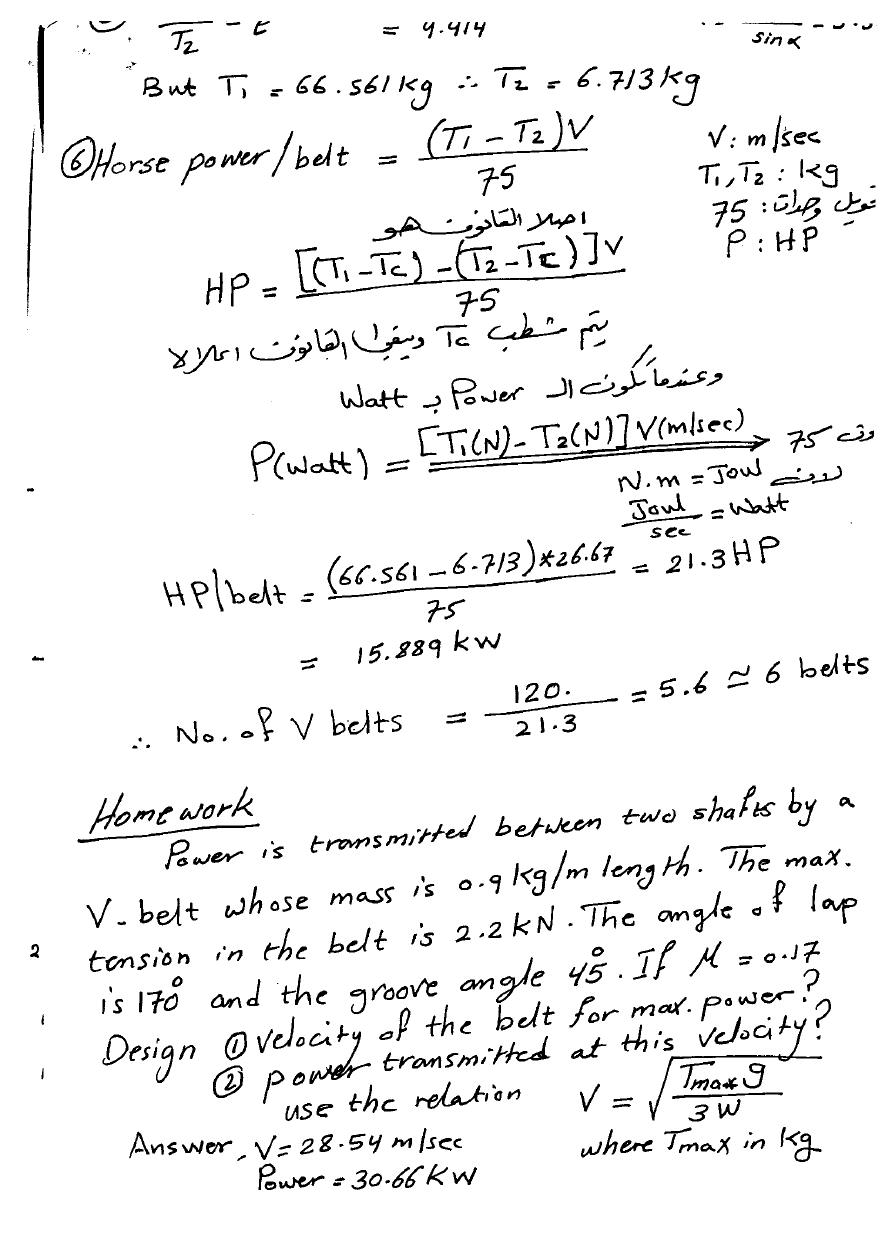 T2 = 4.414 sin α
But T1 = 66.561 kg ∴ T2 = 6.713 kg
⑥ Horse power / belt = (T1 - T2)V / 75
V: m/sec
T1, T2 : kg
75 : تحويل وحدات
P : HP
اصلا القانون هو
HP = [(T1 - Tc) - (T2 - Tc)]V / 75
يتم شطب Tc ويبقى القانون اعلاه
وعندما تكون الـ Power بـ Watt
P(watt) = [T1(N) - T2(N)] V(m/sec) 75
بدون
N.m = Joul
Joul / sec = Watt
HP/belt = (66.561 - 6.713)*26.67 / 75 = 21.3 HP
= 15.889 kW
∴ No. of V belts = 120. / 21.3 = 5.6 ≃ 6 belts
Home work
Power is transmitted between two shafts by a
V-belt whose mass is 0.9 kg/m length. The max.
tension in the belt is 2.2 kN. The angle of lap
is 170° and the groove angle 45°. If M = 0.17
Design ① velocity of the belt for max. power?
② power transmitted at this velocity?
use the relation V = √(Tmax g / 3 W)
Answer, V = 28.54 m/sec where Tmax in kg
Power = 30.66 KW
2